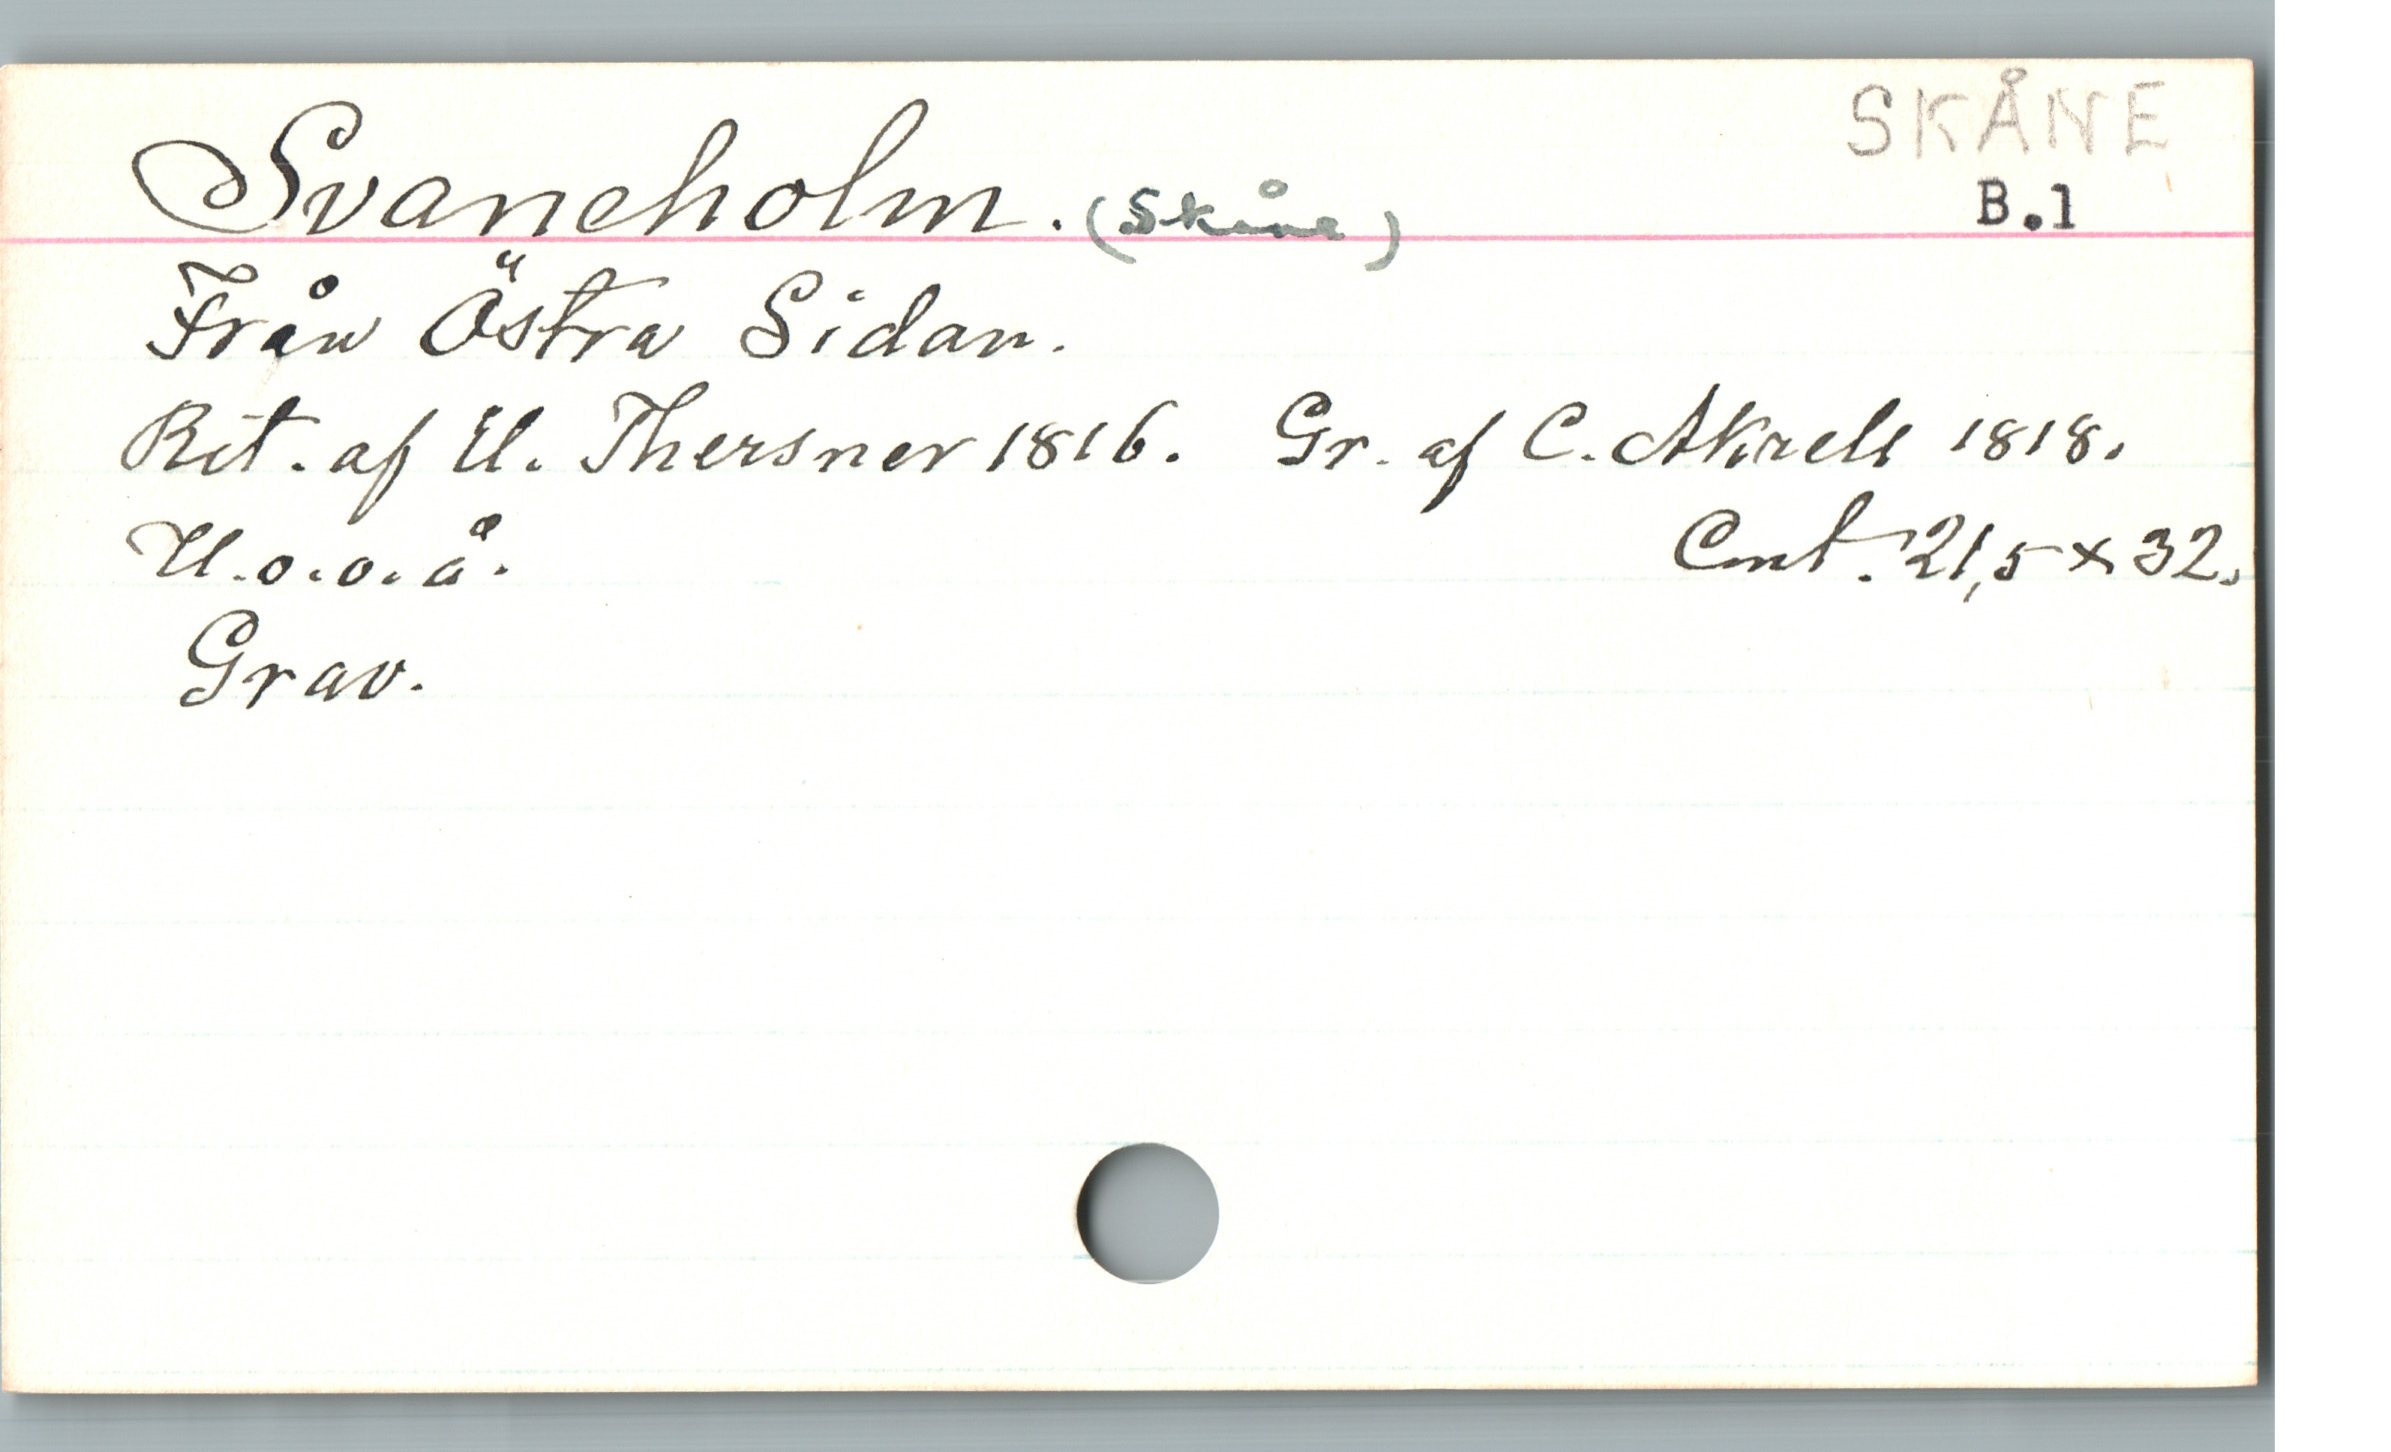 SKÅNE
B.1
Svaneholm. (Skåne)
Från Östra Sidan.
Rit. af U. Thersner 1816. Gr. af C. Akrell 1818.
U.o.o.å. Cmt. 21,5 x 32.
Grav.